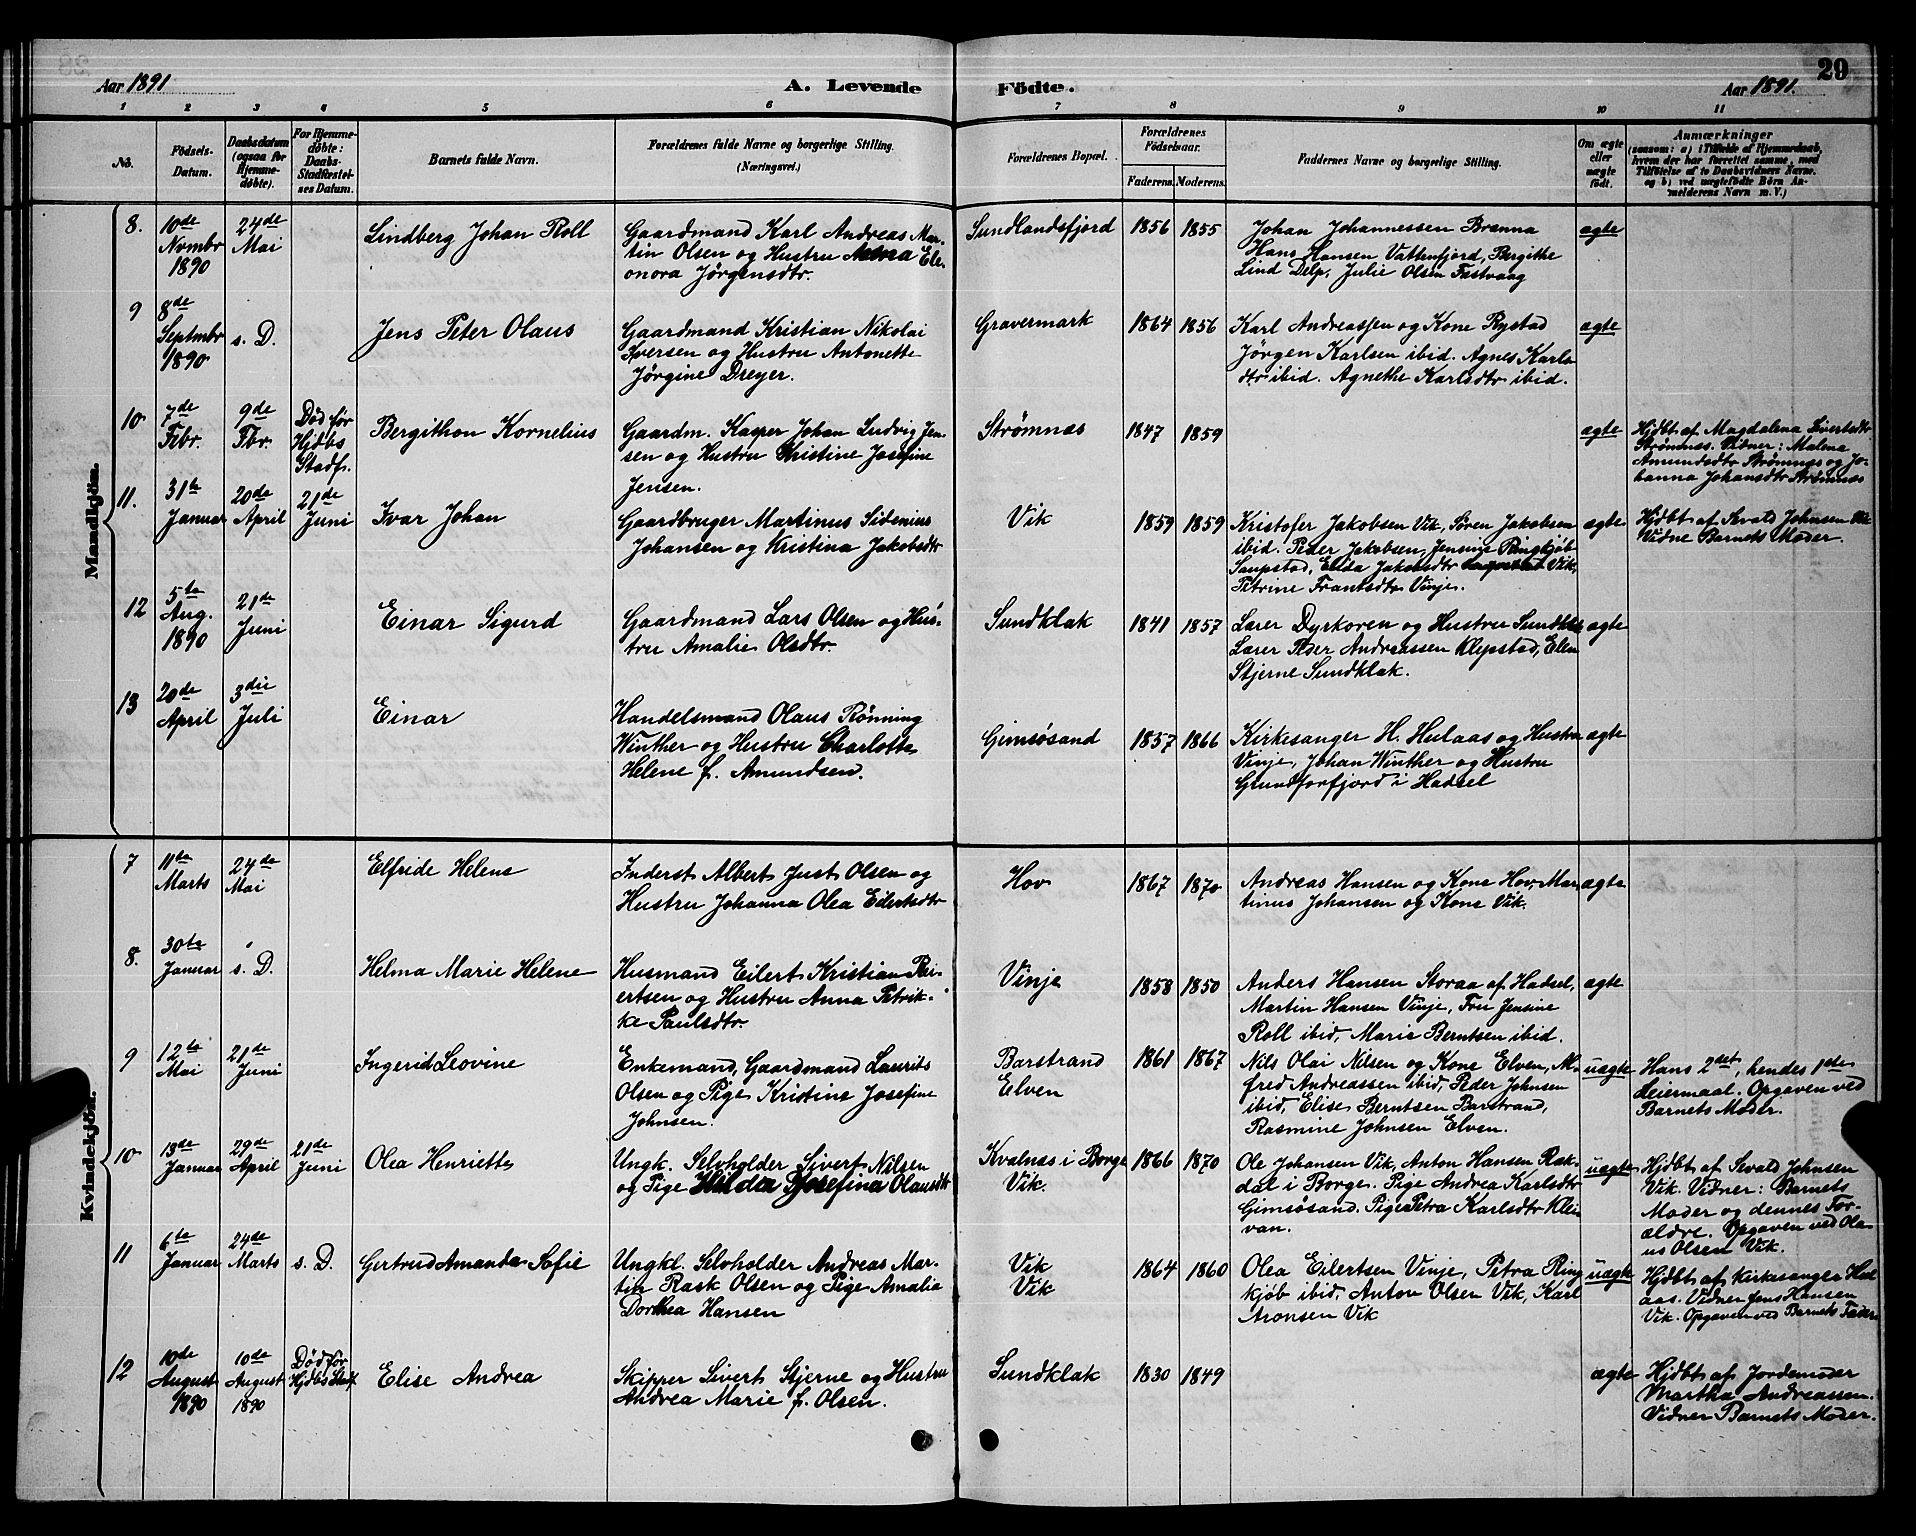 Aar 1891
A. Levende Födte.
Aar 1891.
29
1 2 3 4 5 6 7 8 9 10 11
No.
Födsels-Datum.
Daabsdatum (ogsaa for Hjemme-döbte).
For Hjemme-döbte: Daabs-Stadfæstel-ses Datum.
Barnets fulde Navn.
Forældrenes fulde Navne og borgerlige Stilling.
(Næringsvei.)
Forældrenes Bopæl.
Forældrenes Födselsaar.
Faderens. Moderens.
Faddernes Navne og borgerlige Stilling.
Om ægte eller uægte födt.
Anmærkninger
(saasom: a) i Tilfælde af Hjemmedaab,
hvem der har forrettet samme, med
Tilföielse af to Daabsvidners Navne.
og b) ved uægtefödte Börn An-
melderens Navn m. V.)
Mandkjön.
8. 10de Nvmbr 1890
24de Mai
Lindberg Johan Roll
Gaardmand Karl Andreas Mar-
tin Olsen og Hustru Anna Ele-
onora Jørgensdtr.
Sundlandsfjord 1856 1855
Johan Johannessen Brenna
Hans Hansen Vattenfjord, Bergithe
Lind Delp, Julie Olsen Fastvaag
ægte
9 8de Septmbr 1890
s. D.
Jens Peter Olaus
Gaardmand Kristian Nikolai
Iversen og Hustru Antonette
Jørgine Dreyer.
Gravermark 1864 1856
Karl Andreassen og Kone Rystad
Jörgen Karlsen ibid. Agnes Karls
dtr ibid. Agnethe Karlsdtr ibid.
ægte
10 7de Febr.
9de Fbr.
Død før Hjdbs Stadf.
Bergithon Kornelius
Gaardm. Kasper Johan Ludvig Jen-
sen og Hustru Kristine Josefine
Jensen.
Strømnæs 1847 1859
ægte
Hjdbt af Magdalena Sivertsdtr
Strømnæs. Vidner: Malena
Amundsdtr Strømnæs og Jo-
hanna Johansdtr Strømnæs
11. 31te Januar
20de April
21de Juni
Ivar Johan
Gaardbruger Martinus Sidenius
Johansen og Kristina Jakobsdtr
Vik 1859 1859
Kristofer Jakobsen Vik, Søren Jakobsen
ibid. Peder Jakobsen, Jensine Ringkjøb
Saupstad, Jakobsdtr Vik,
Petrine Frantsdtr Vinje.
ægte
Hjdbt af Sevald Johnsen Vik
Vidne Barnets Moder.
12 5te Aug. 1890
21de Juni
Einar Sigurd
Gaardmand Lars Olsen og Hus-
tru Amalie Olsdtr.
Sundklak 1841 1857
Lærer Dyrkoren og Hustru Sundklak
Lærer Peder Andreassen Klepstad, Elen
Stjerne Sundklak.
ægte
13 20de April
3die Juli
Einar
Handelsmand Olaus Rönning
Winther og Hustru Charlotte
Helene f. Amundsen.
Gimsøsand 1857 1866
Kirkesanger H. Hulaas og Hustru
Vinje, Johan Winther og Hustru
Grundforfjord i Hadsel
ægte
Kvindekjön.
7 11te Marts
24de Mai
Elfride Helene
Inderst Albert Just Olsen og
Hustru Johanna Olea Eilertsdtr
Hov 1867 1870
Andreas Hansen og Kone Hov, Mar
tinus Johansen og Kone Vik.
ægte
8. 30te Januar
s. D.
Helma Marie Helene
Husmand Eilert Kristian
ertsen og Hustru Anna Petrik-
ke Paulsdtr.
Vinje 1858 1850
Anders Hansen Storaa af Hadsel,
Martin Hansen Vinje, Fru Jensine
Roll ibid, Marie Berntsen ibid.
ægte
9 12te Mai
21de Juni
Ingerid Leovine
Enkemand, Gaardmand Laurits
Olsen og Pige Kristine Josefine
Johnsen.
Barstrand
Elven
1861 1867
Nils Olai Nilsen og Kone Elven, Al-
fred Andreassen ibid, Peder Johnsen
ibid, Elise Berntsen Barstrand,
Rasmine Johnsen Elven.
uægte
Hans 2det, hendes 1ste
Leiermaal. Opgaven ved
Barnets Moder.
10 13de Januar
29de April
21de Juni
Olea Henriette
Ungk. Selvholder Sivert Nilsen
og Pige Hilda Josefina Olausdtr
Kvalnæs i Borge
Vik.
1866 1870
Ole Johansen Vik, Anton Hansen Rak-
dal i Borge. Pige Andrea Karlsdtr
Gimsøsand. Pige Petra Karlsdtr Klei
van.
uægte
Hjdbt af Sevald Johnsen
Vik. Vidner: Barnets
Moder og dennes For-
ældre. Opgaven ved Ola-
us Olsen Vik.
11 6te Januar
24de Marts
s. D.
Gertrud Amanda Sofie
Ungkl. Selvholder Andreas Mar-
tin Rask Olsen og Pige Amalia
Dorthea Hansen
Vik
Vik
1864 1860
Olea Eilertsen Vinje, Petra Ring
kjøb ibid, Anton Olsen Vik, Karl
Aronsen Vik
uægte
Hjdbt af Kirkesanger Hul
aas. Vidner Jens Hansen
Vik. Opgaven ved Barnets Fader
12 10de August 1890
10de August 1890
Død før Hjdbs Stadf
Elise Andrea
Skipper Sivert Stjerne og Hustru
Andrea Marie f. Olsen.
Sundklak 1830 1849
ægte
Hjdbt af Jordemoder
Martha Andreassen.
Vidner Barnets Moder.